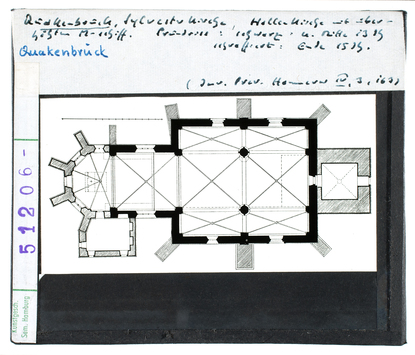 Quakenbrück, Sylvesterkirche, Hallenkirche mit über-
höhtem M-schiff. Grundriss: schwarz: u. Mitte 13 Jh
schraffiert: Ende 15 Jh.
Quakenbrück
(Inv. Prov. Hannover IV, 3, 163)
51206-
Kunstgesch.
Sem. Hamburg